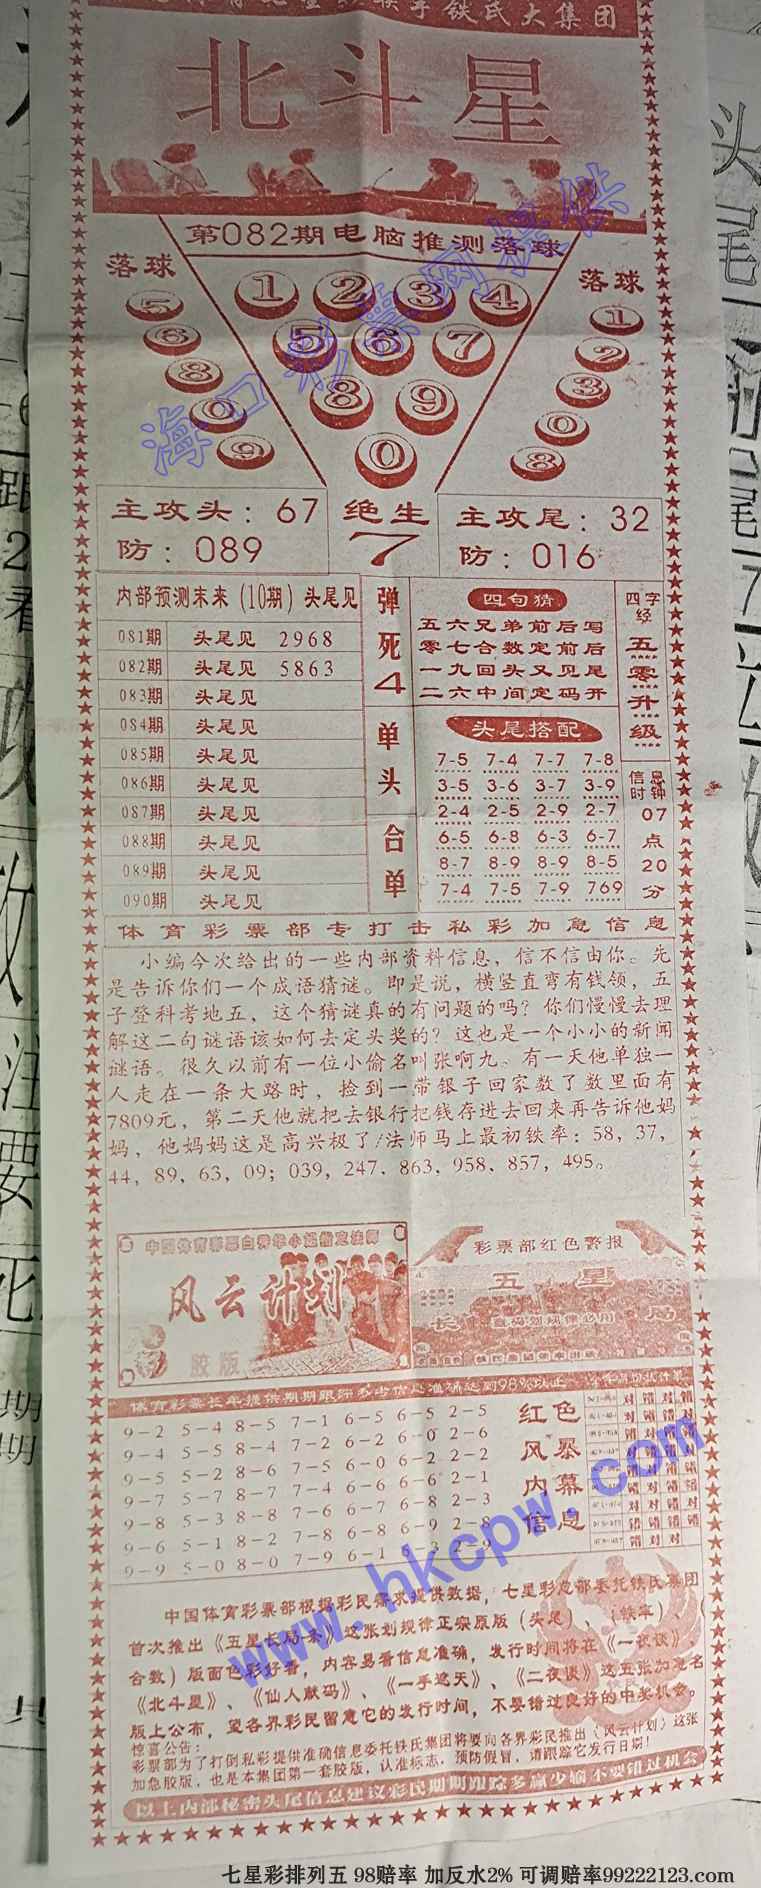 铁氏大集团
北斗星
第082期电脑推测落球
落球
5
6
8
0
9
1 2 3 4
5 6 7
8 9
0
落球
1
2
3
0
8
主攻头：67
防：089
绝生
7
主攻尾：32
防：016
内部预测末来（10期）头尾见
081期 头尾见 2968
082期 头尾见 5863
083期 头尾见
084期 头尾见
085期 头尾见
086期 头尾见
087期 头尾见
088期 头尾见
089期 头尾见
090期 头尾见
弹死4单头合单
四句猜
五六兄弟前后写
零七合数定前后
一九回头又见尾
二六中间定码开
四字经
五零升级
头尾搭配
7-5 7-4 7-7 7-8
3-5 3-6 3-7 3-9
2-4 2-5 2-9 2-7
6-5 6-8 6-3 6-7
8-7 8-9 8-9 8-5
7-4 7-5 7-9 769
信息时钟
07点20分
体育彩票部专打击私彩加急信息
小编今次给出的一些内部资料信息，信不信由你。先
是告诉你们一个成语猜谜。即是说，横竖直弯有钱领，五
子登科考地五、这个猜谜真的有问题的吗？你们慢慢去理
解这二句谜语该如何去定头奖的？这也是一个小小的新闻
谜语。很久以前有一位小偷名叫张啊九。有一天他单独一
人走在一条大路时，捡到一带银子回家数了数里面有
7809元，第二天他就把去银行把钱存进去回来再告诉他妈
妈，他妈妈这是高兴极了/法师马上最初铁率：58，37，
44，89，63，09；039，247．863，958，857，495。
风云计划
胶版
彩票部红色警报
五星
长局
体育彩票长年提供期期跟踪
9-2 5-4 8-5 7-1 6-5 6-5 2-5
9-4 5-5 8-4 7-2 6-2 6-0 2-6
9-5 5-2 8-6 7-5 6-0 6-2 2-2
9-7 5-7 8-7 7-4 6-6 6-6 2-1
9-8 5-3 8-8 7-6 6-7 6-8 2-3
9-6 5-1 8-2 7-8 6-8 6-9 2-8
9-9 5-0 8-0 7-9 6-1 6-3 2-9
红色
风暴
内幕
信息
中国体育彩票部根据彩民需求提供数据，七星彩总部委托铁氏集团
首次推出《五星长局条》这张划规律正宗原版（头尾）、（铁率）、（
合数）版面色彩好看，内容易看信息准确，发行时间将在《一夜谈》、
《北斗星》、《仙人献码》、《一手遮天》、《二夜谈》这五张加龙名
版上公布，望各界彩民留意它的发行时间，不要错过良好的中奖机会。
惊喜公告：
彩票部为了打倒私彩提供准确信息委托铁氏集团将要向各界彩民推出《风云计划》这张
加急胶版，也是本集团第一套胶版，认准标志，预防假冒，请跟踪它发行日期！
以上内部秘密头尾信息建议彩民期期跟踪多赢少输不要错过机会
海口彩票网提供
www.hkcpw.com
七星彩排列五 98赔率 加反水2% 可调赔率99222123.com